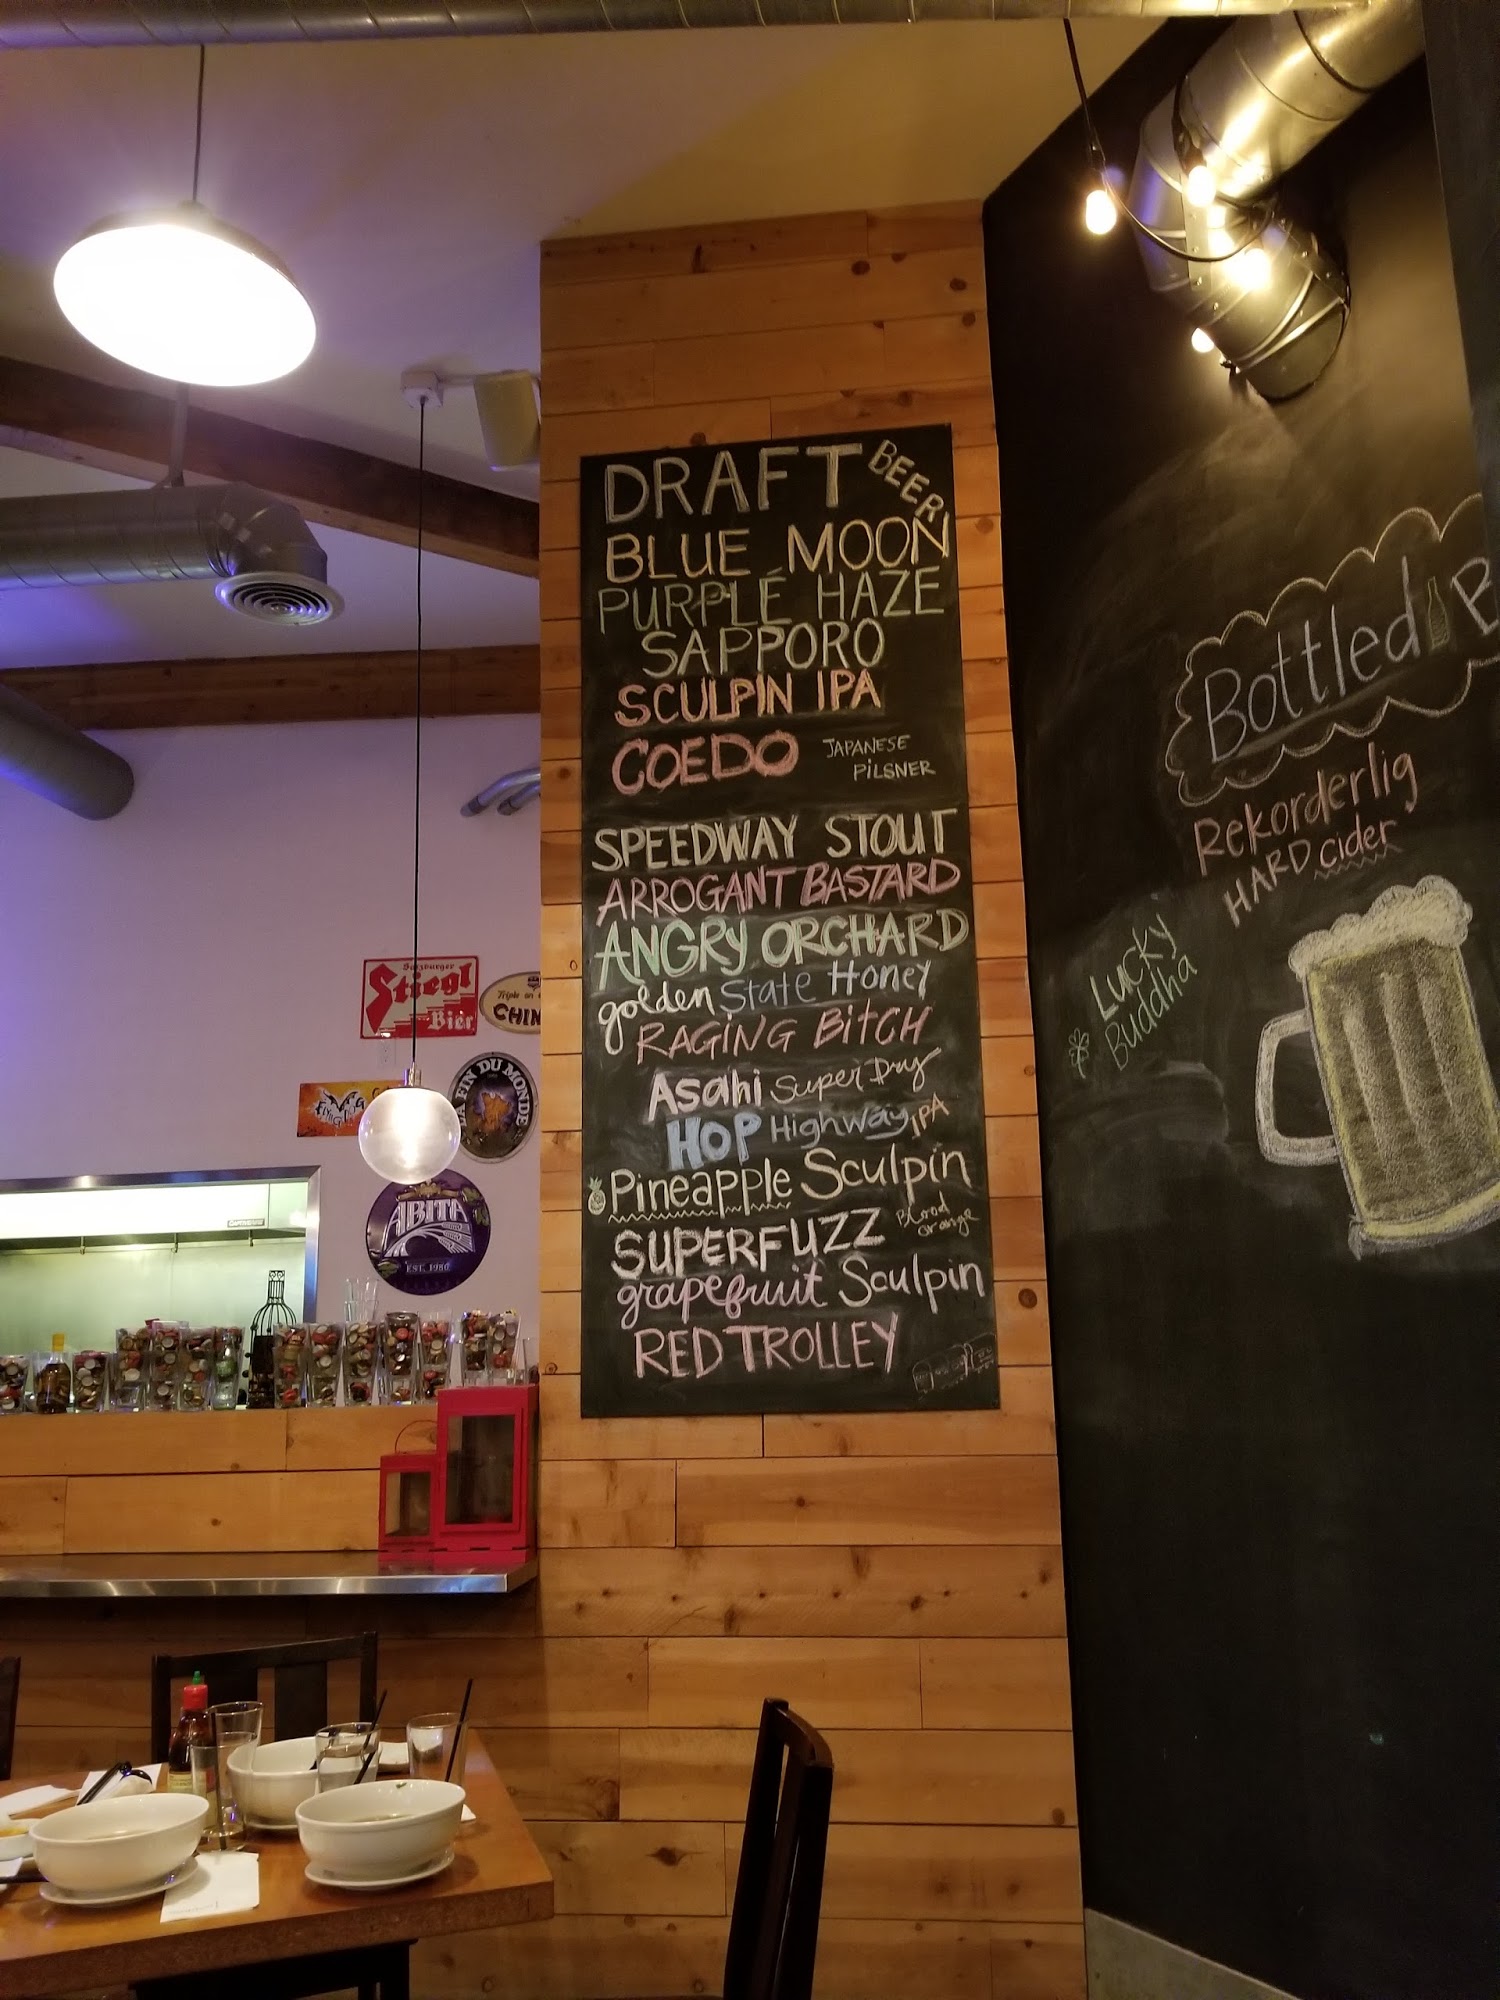 DRAFT BEER
BLUE MOON
PURPLE HAZE
SAPPORO
SCULPIN IPA
COEDO JAPANESE
PILSNER
SPEEDWAY STOUT
ARROGANT BASTARD
ANGRY ORCHARD
golden State Honey
RAGING BITCH
Asahi Super Dry
HOP Highway IPA
Pineapple Sculpin
SUPERFUZZ Blood
orange
grapefruit Sculpin
RED TROLLEY
Bottled
Rekorderlig
HARD cider
Lucky
Buddha
Salzburger
Stiegl
Bier
LA FIN DU MONDE
ABITA
EST. 1986